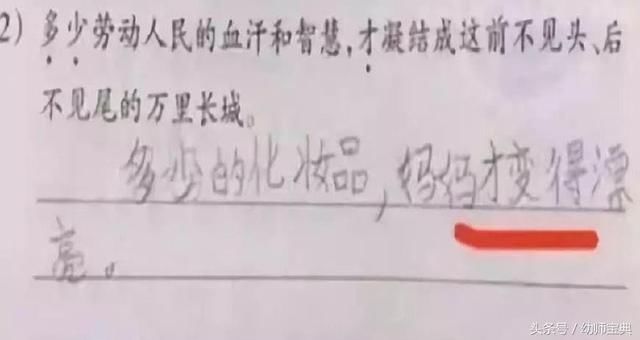 2）多少劳动人民的血汗和智慧,才凝结成这前不见头、后
不见尾的万里长城。
多少的化妆品,妈妈才变得漂
亮。
头条号 / 幼师宝典